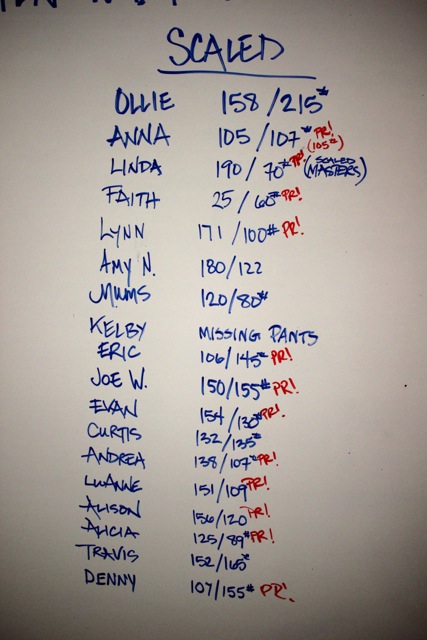 SCALED
OLLIE 158/215#
ANNA 105/107# PR! (105#)
LINDA 190/70# PR! (SCALED MASTERS)
FAITH 25/60# PR!
LYNN 171/100# PR!
AMY N. 180/122
MUMS 120/80#
KELBY MISSING PANTS
ERIC 106/145# PR!
JOE W. 150/155# PR!
EVAN 154/130# PR!
CURTIS 132/135#
ANDREA 138/107# PR!
LUANNE 151/109 PR!
ALISON 156/120 PR!
ALICIA 125/89# PR!
TRAVIS 152/165#
DENNY 107/155# PR!